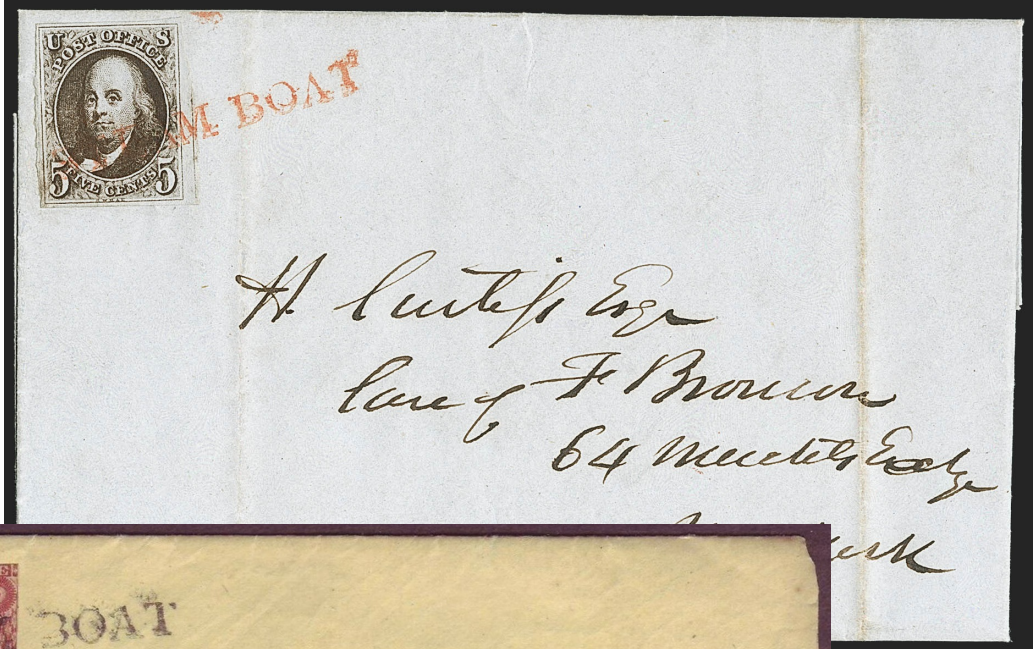 U S
POST OFFICE
5 FIVE CENTS 5
M BOAT
H. Curtiss Esqr
Care of F Bronson
64 Merchts Exchge
ork
BOAT